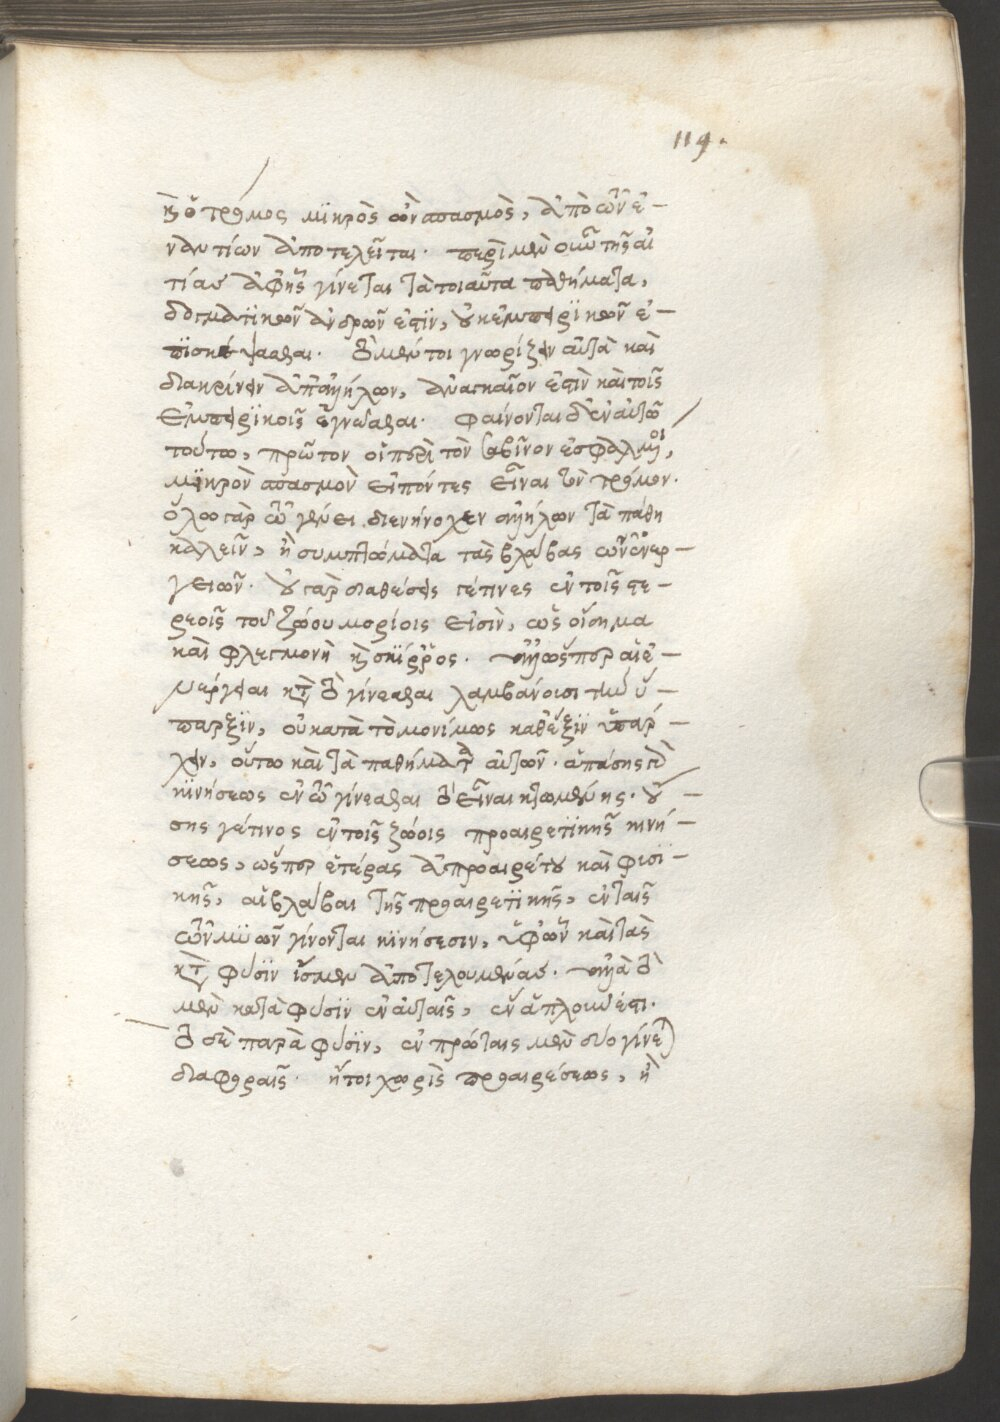 119.
καὶ ὁ τρόμος μϊκρὸς ὢν σπασμὸς, ἀπὸ τῶν ἐ-
ναντίων ἀποτελεῖται. περὶ μὲν οὖν τῆς αἰ
τίας ἀφ' ἧς γίνεται τὰ τοιαῦτα παθήματα,
δογματϊκῶν ἀνδρῶν ἐστϊν, οὐκ ἐμπειρϊκῶν ἐ-
πϊσκέψασθαι. τὸ μέντοι γνωρίζειν αὐτὰ καὶ
διακρίνειν ἀπ' ἀλλήλων, ἀναγκαῖον ἐστὶν καὶ τοῖς
ἐμπειρϊκοῖς ἐγνῶσθαι. φαίνονται δ' ἐν αὐτῶ
τούτω, πρῶτον οἱ περὶ τὸν σαβῖνον ἐσφαλμένοι,
μϊκρὸν σπασμὸν εἰπόντες εἶναι τὸν τρόμον.
ὅλω γὰρ τῶ γένει διενήνοχεν ἀλλήλων τὰ πάθη
καλεῖν, ἢ συμπτώματα τὰς βλάβας τῶν ἐνερ-
γειῶν. οὐ γὰρ διαθέσεις γέ τινες ἐν τοῖς στε-
ρεοῖς τοῦ ζώου μορίοις εἰσὶν, ὡς οἴδημα
καὶ φλεγμονὴ καὶ σκίρρος. ἀλλ' ὥσπερ αἱ ἐ-
νέργειαι κατὰ τὸ γίνεσθαι λαμβάνουσι τὴν ὕ-
παρξϊν, οὐ κατὰ τὸ μονίμως καθ' ἕξϊν ὑπάρ-
χειν, οὕτω καὶ τὰ παθήματα αὐτῶν. ἁπάσης γὰρ
κϊνήσεως ἐν τῶ γίνεσθαι τὸ εἶναι κτωμένης. οὔ-
σης γέ τινος ἐν τοῖς ζώοις προαιρετϊκῆς κινή-
σεως, ὥσπερ ἑτέρας ἀπροαιρέτου καὶ φυσϊ-
κῆς, αἱ βλάβαι τῆς προαιρετϊκῆς, ἐν ταῖς
τῶν μϋῶν γίνονται κϊνήσεσιν, ὑφ' ὧν καὶ τὰς
κατὰ φύσϊν ἴσμεν ἀποτελουμένας. ἀλλὰ τὸ
μὲν κατὰ φύσϊν ἐν αὐταῖς, ἓν ἁπλοῦν ἐστι.
τὸ δὲ παρὰ φύσϊν, ἐν πρώταις μὲν δύο γίνεται
διαφοραῖς. ἤτοι χωρὶς προαιρέσεως, ἢ